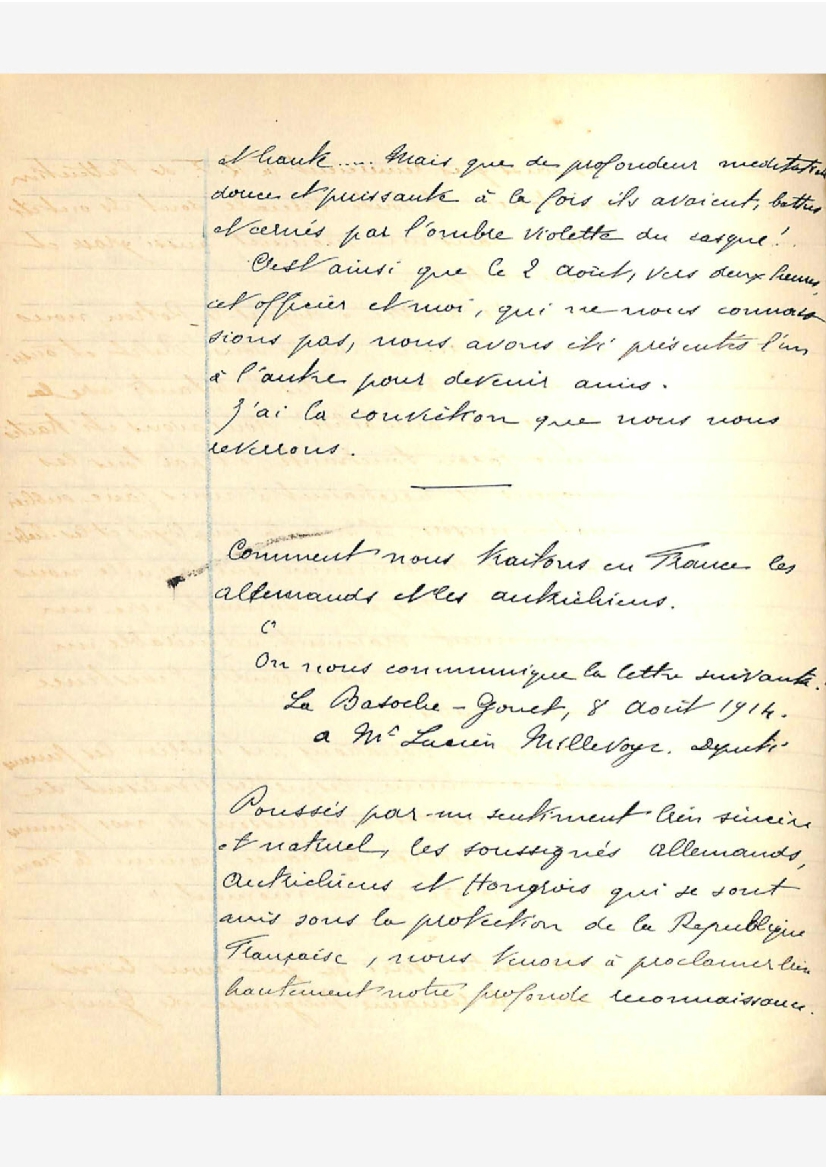 et haute..... Mais que de profondeur meditative
douce et puissante à la fois ils avaient, battus
et cernés par l'ombre violette du casque !.
C'est ainsi que le 2 Août, vers deux heures,
cet officier et moi, qui ne nous connais
sions pas, nous avons été présentés l'un
à l'autre pour devenir amis.
J'ai la conviction que nous nous
reverrons.
Comment nous traitons en France les
allemands et les autrichiens.
On nous communique la lettre suivante.
La Basoche - Gouet, 8 Août 1914.
a Mr Lucien Millevoye. Deputé
Poussés par un sentiment bien sincère
et naturel, les soussignés allemands,
Autrichiens et Hongrois qui se sont
mis sous la protection de la Republique
Française, nous tenons à proclamer bien
hautement notre profonde reconnaissance.